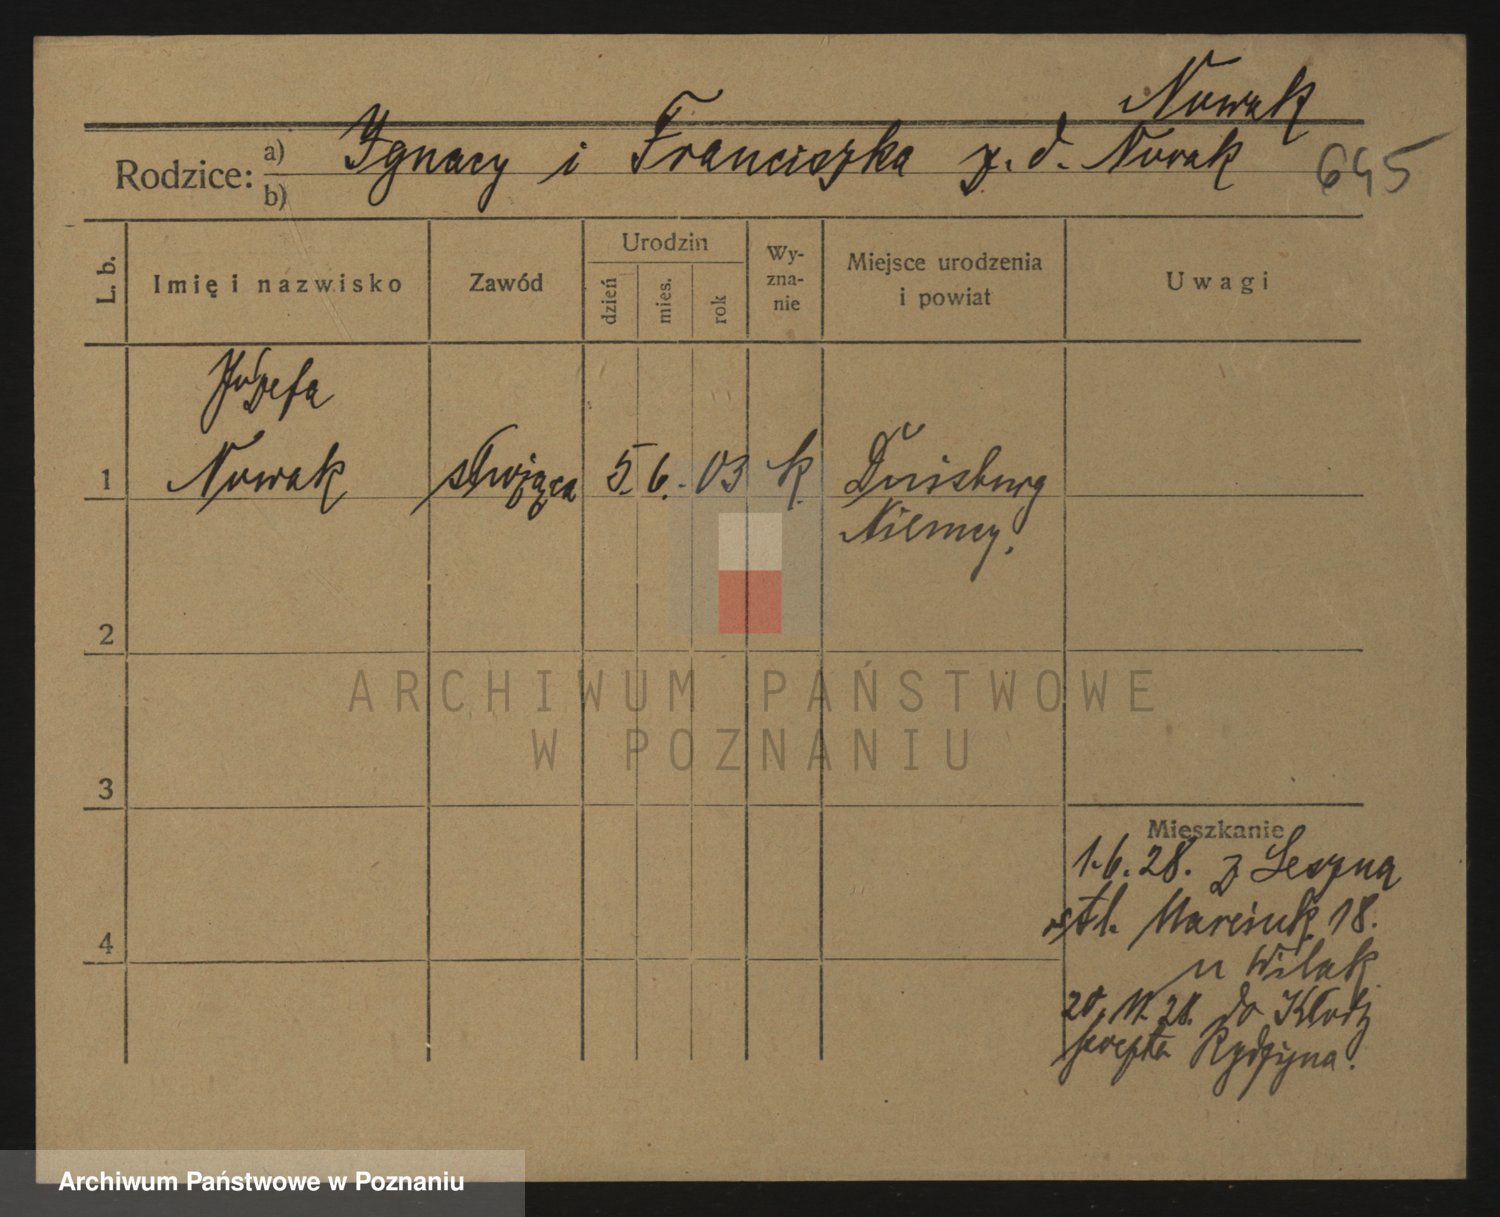 Nowak
Rodzice: a) Ignacy i Franciszka z. d. Nowak
b)
645
L. b. Imię i nazwisko Zawód Urodzin dzień mies. rok Wy-zna-nie Miejsce urodzenia i powiat Uwagi
Józefa
1 Nowak służąca 5. 6. 03 k. Duisburg
Niemcy.
2
ARCHIWUM PAŃSTWOWE
W POZNANIU
3
Mieszkanie
1.6.28. z Leszna
Marcink. 18.
4
u Wilak
20. 11. 28. do Kłody
Rydzyna.
Archiwum Państwowe w Poznaniu